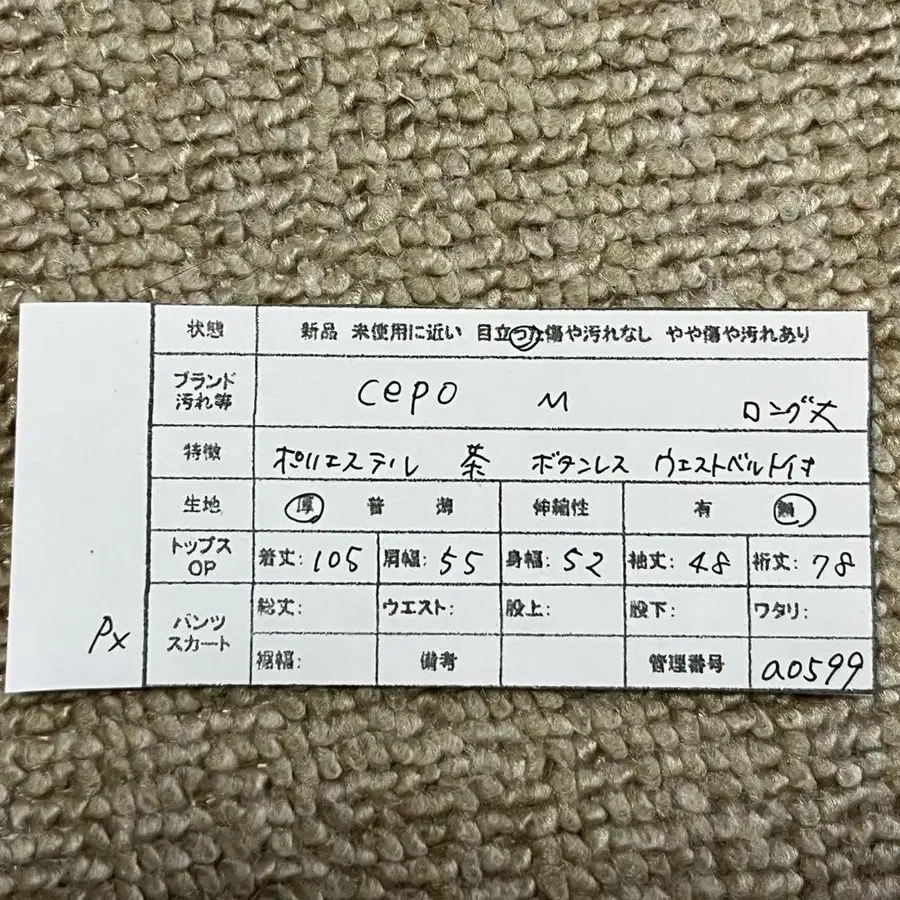 状態 新品 未使用に近い 目立った傷や汚れなし やや傷や汚れあり
ブランド 汚れ等 cepo M ロング丈
特徴 ポリエステル 茶 ボタンレス ウエストベルト付
生地 厚 普 薄 伸縮性 有 無
トップス OP 着丈: 105 肩幅: 55 身幅: 52 袖丈: 48 裄丈: 78
パンツ スカート 総丈: ウエスト: 股上: 股下: ワタリ:
Px 裾幅: 備考 管理番号 a0599